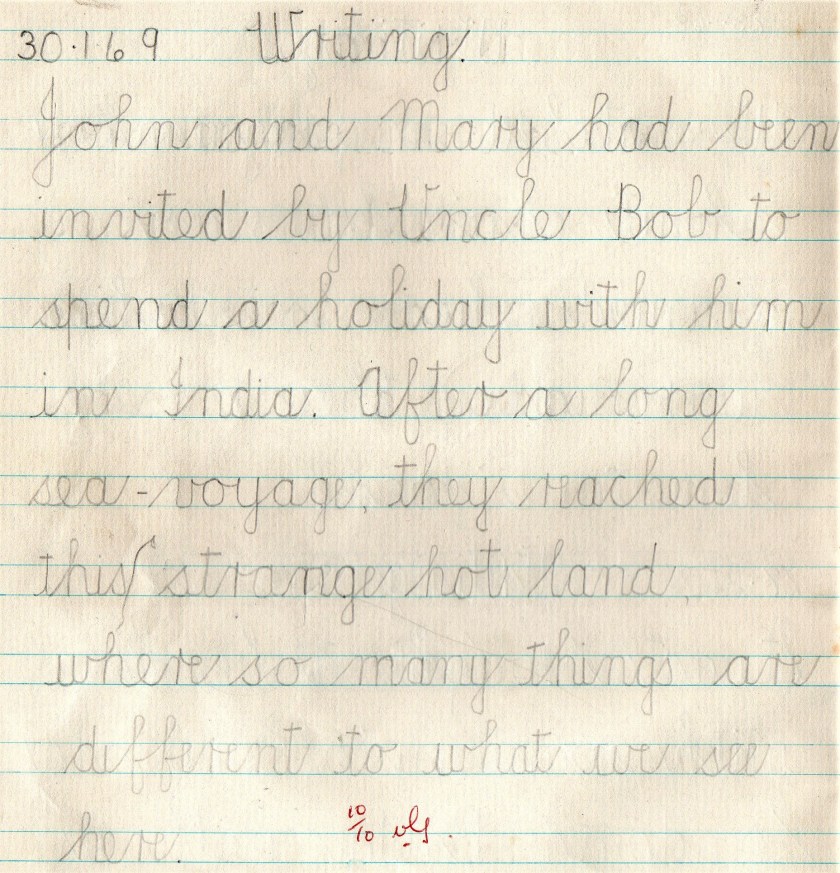 30.1.69 Writing.
John and Mary had been
invited by Uncle Bob to
spend a holiday with him
in India. After a long
sea-voyage, they reached
this strange hot land,
where so many things are
different to what we see
here.
10/10